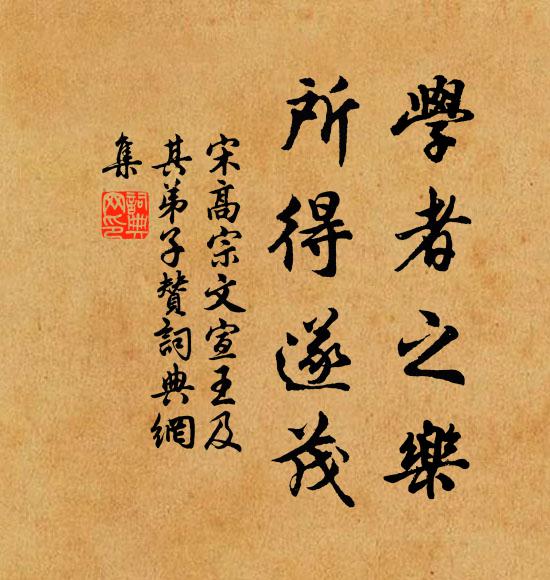 學者之樂
所得遂茂
宋高宗文宣王及
其弟子贊詞典網
集
詞典
网印